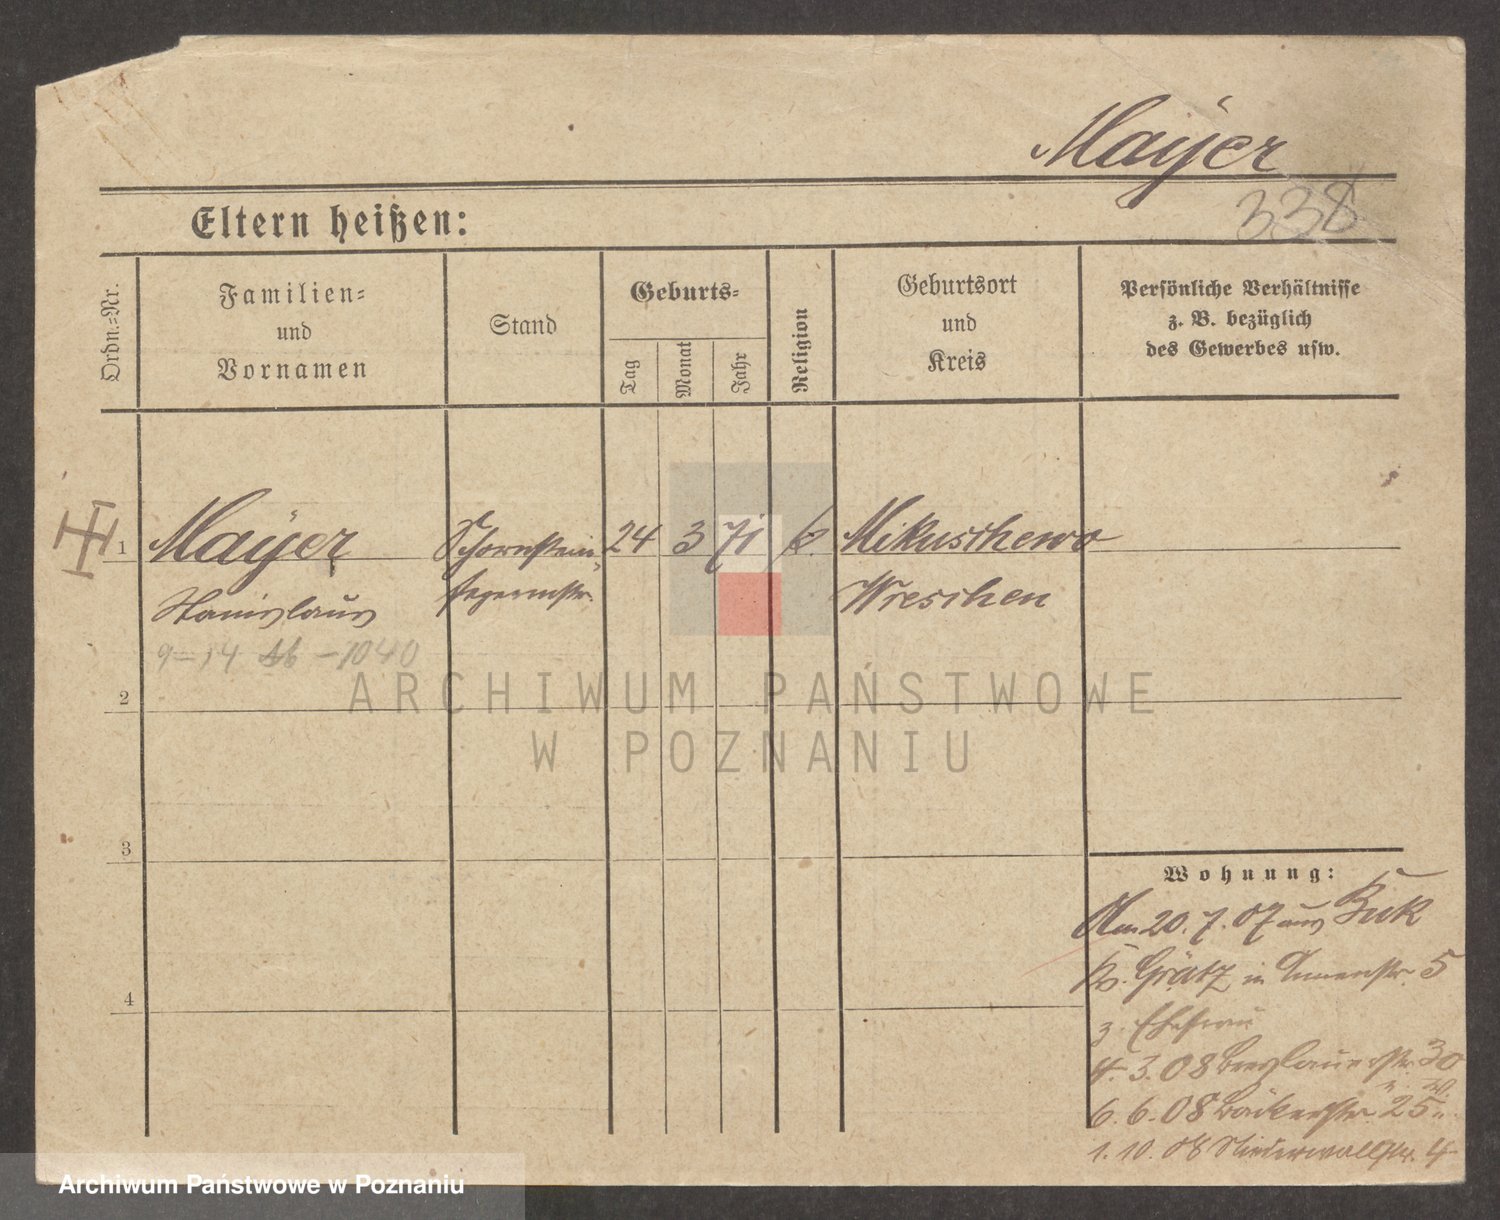 Mayer
338
Eltern heißen:
Ordn.=Nr.
Familien=
und
Vornamen
Stand
Geburts=
Tag
Monat
Jahr
Religion
Geburtsort
und
Kreis
Persönliche Verhältnisse
z. B. bezüglich
des Gewerbes usw.
1
Mayer
Stanislaus
Schornstein-
fegermstr.
24
3
71
k.
Mikuschewo
Wreschen
9-14 -1040
2
3
4
Wohnung:
Am 20. 7. 07 aus Buk
Kr. Grätz in 5
z. Ehefrau
4. 3. 08 Breslauerstr. 30
6. 6. 08 Bäckerstr. 25
1. 10. 08 Niederwallstr. 4
ARCHIWUM PAŃSTWOWE
W POZNANIU
Archiwum Państwowe w Poznaniu